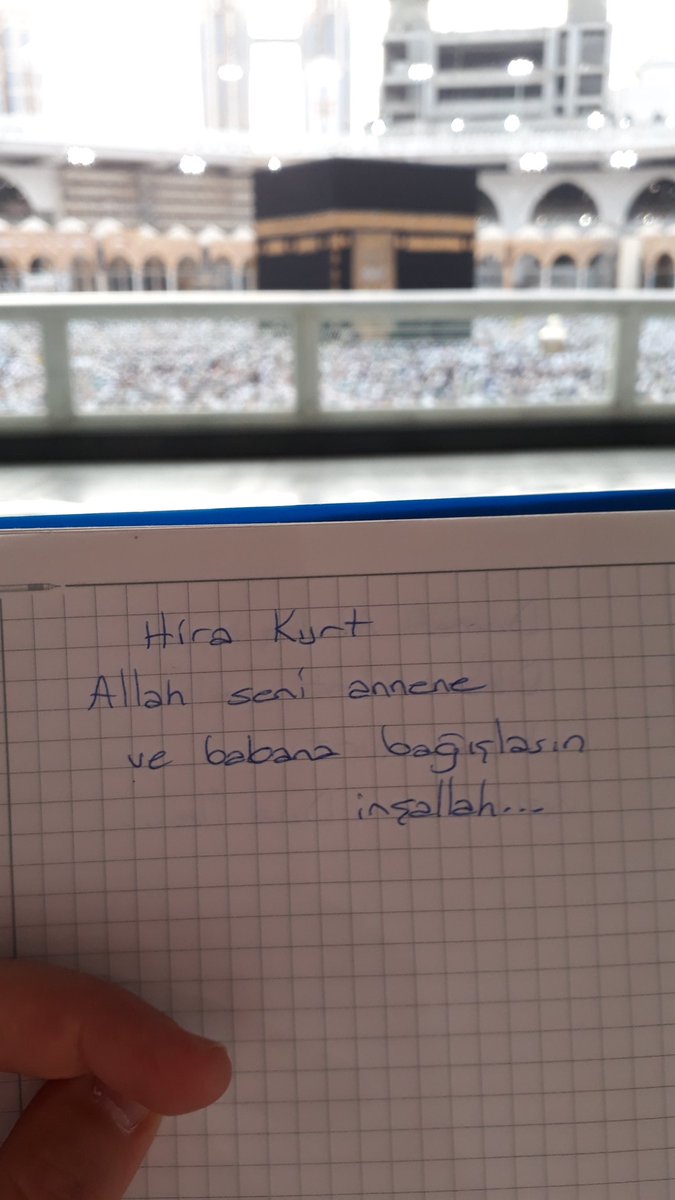 Hira Kurt
Allah seni annene
ve babana bağışlasın
inşallah...